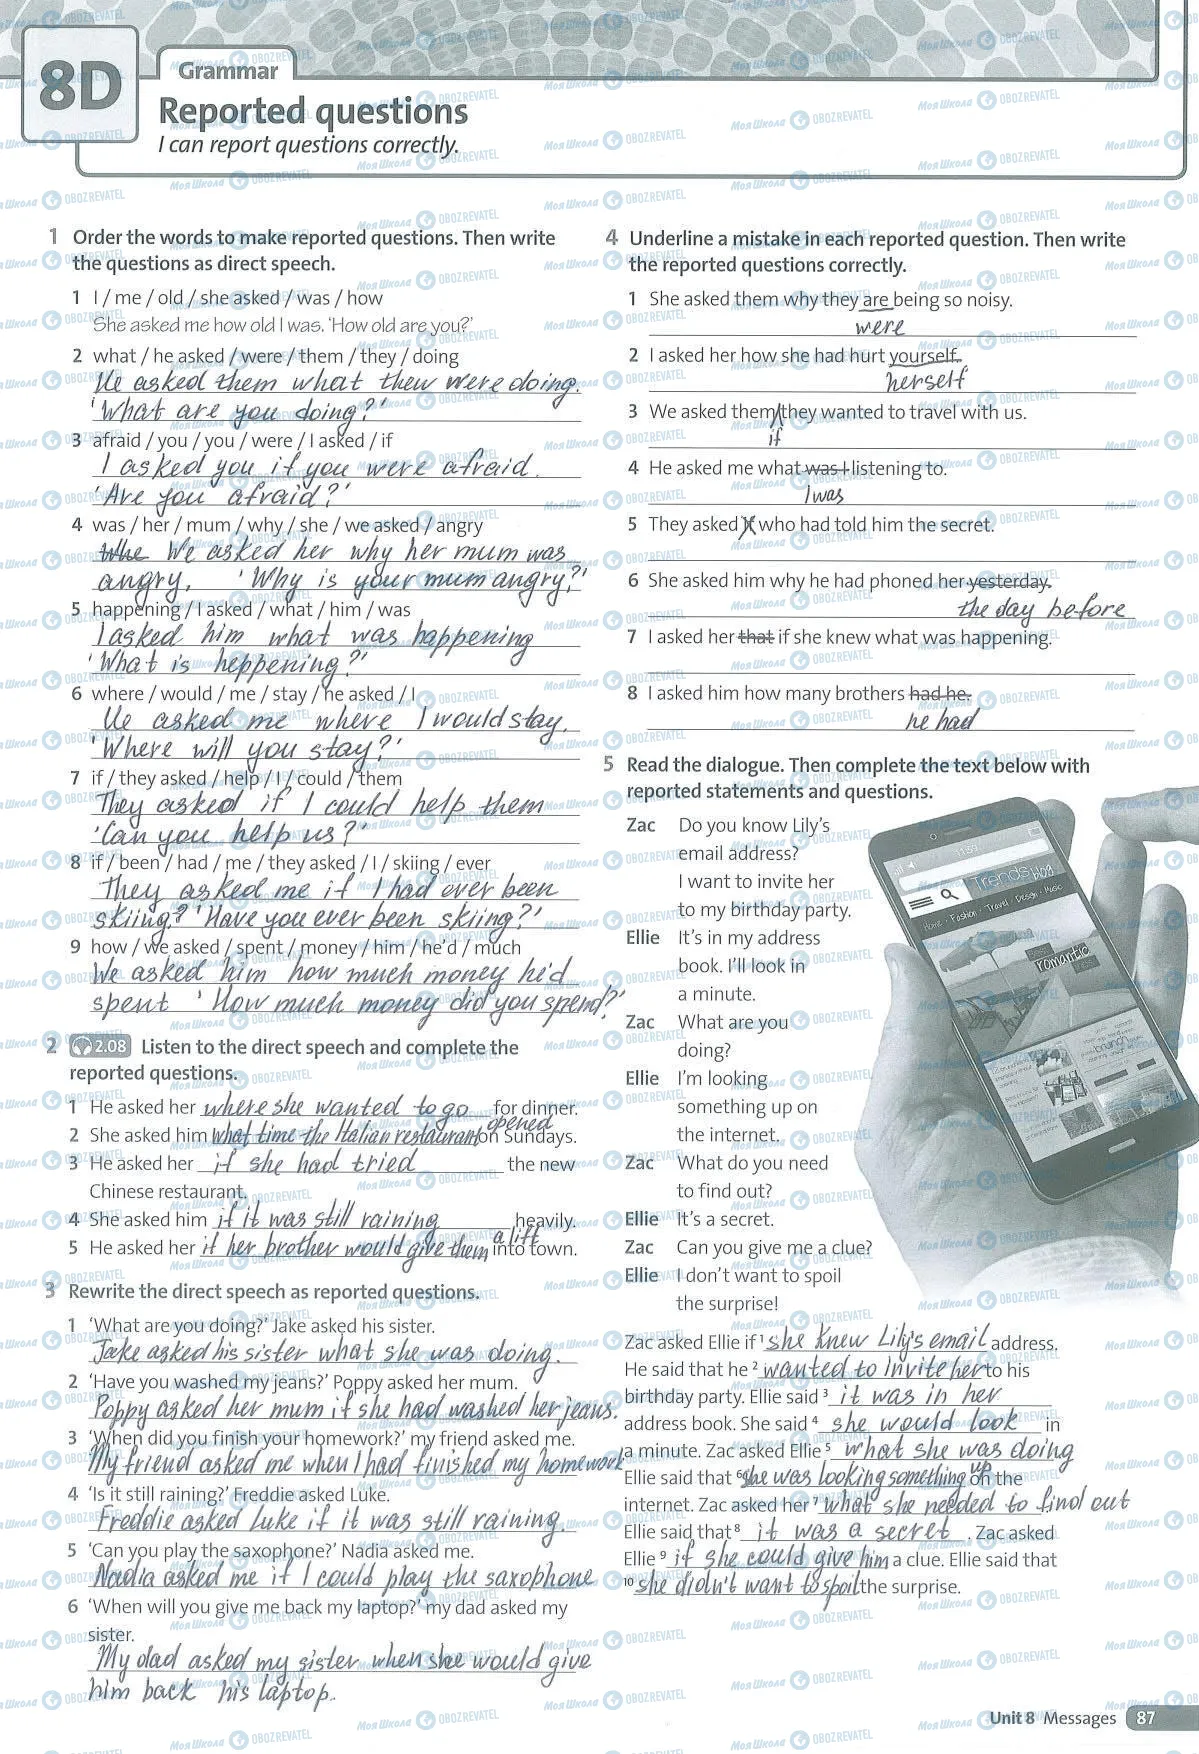 8D
Grammar
Reported questions
I can report questions correctly.
1 Order the words to make reported questions. Then write
the questions as direct speech.
1 I / me / old / she asked / was / how
She asked me how old I was. 'How old are you?'
2 what / he asked / were / them / they / doing
He asked them what thew were doing.
'What are you doing?'
3 afraid / you / you / were / I asked / if
I asked you if you were afraid.
'Are you afraid?'
4 was / her / mum / why / she / we asked / angry
We asked her why her mum was
angry, 'Why is your mum angry?'
5 happening / I asked / what / him / was
I asked him what was happening
'What is heppening?'
6 where / would / me / stay / he asked / I
He asked me where I would stay.
'Where will you stay?'
7 if / they asked / help / I / could / them
They asked if I could help them
'Can you help us?'
8 if / been / had / me / they asked / I / skiing / ever
They asked me if I had ever been
skiing? 'Have you ever been skiing?'
9 how / we asked / spent / money / him / he'd / much
We asked him how much money he'd
spent 'How much money did you spend?'
2 2.08 Listen to the direct speech and complete the
reported questions.
1 He asked her where she wanted to go for dinner.
opened
2 She asked him what time the Italian restaurant on Sundays.
3 He asked her if she had tried the new
Chinese restaurant.
4 She asked him if it was still raining heavily.
a lift
5 He asked her if her brother would give them into town.
3 Rewrite the direct speech as reported questions.
1 'What are you doing?' Jake asked his sister.
Jake asked his sister what she was doing.
2 'Have you washed my jeans?' Poppy asked her mum.
Poppy asked her mum if she had washed her jeans.
3 'When did you finish your homework?' my friend asked me.
My friend asked me when I had finished my homework
4 'Is it still raining?' Freddie asked Luke.
Freddie asked Luke if it was still raining.
5 'Can you play the saxophone?' Nadia asked me.
Nadia asked me if I could play the saxophone
6 'When will you give me back my laptop?' my dad asked my
sister.
My dad asked my sister when she would give
him back his laptop.
4 Underline a mistake in each reported question. Then write
the reported questions correctly.
1 She asked them why they are being so noisy.
were
2 I asked her how she had hurt yourself.
herself
3 We asked them they wanted to travel with us.
if
4 He asked me what was I listening to.
I was
5 They asked X who had told him the secret.
6 She asked him why he had phoned her yesterday.
the day before
7 I asked her that if she knew what was happening.
8 I asked him how many brothers had he.
he had
5 Read the dialogue. Then complete the text below with
reported statements and questions.
Zac Do you know Lily's
email address?
I want to invite her
to my birthday party.
Ellie It's in my address
book. I'll look in
a minute.
Zac What are you
doing?
Ellie I'm looking
something up on
the internet.
Zac What do you need
to find out?
Ellie It's a secret.
Zac Can you give me a clue?
Ellie I don't want to spoil
the surprise!
11:59
Trends blog
Home / Fashion / Travel / Design / Music
romantic
brunch
Zac asked Ellie if 1 she knew Lily's email address.
He said that he 2 wanted to invite her to his
birthday party. Ellie said 3 it was in her
address book. She said 4 she would look in
a minute. Zac asked Ellie 5 what she was doing
up
Ellie said that 6 she was looking something on the
internet. Zac asked her 7 what she needed to find out
Ellie said that 8 it was a secret. Zac asked
Ellie 9 if she could give him a clue. Ellie said that
10 she didn't want to spoil the surprise.
Unit 8 Messages 87
Моя Школа OBOZREVATEL